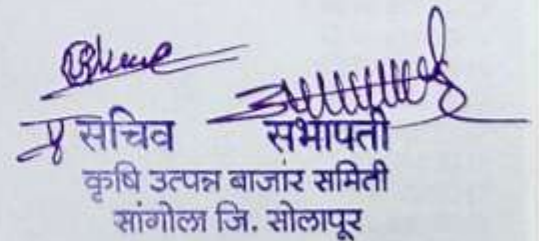 सचिव सभापती
कृषि उत्पन्न बाजार समिती
सांगोला जि. सोलापूर